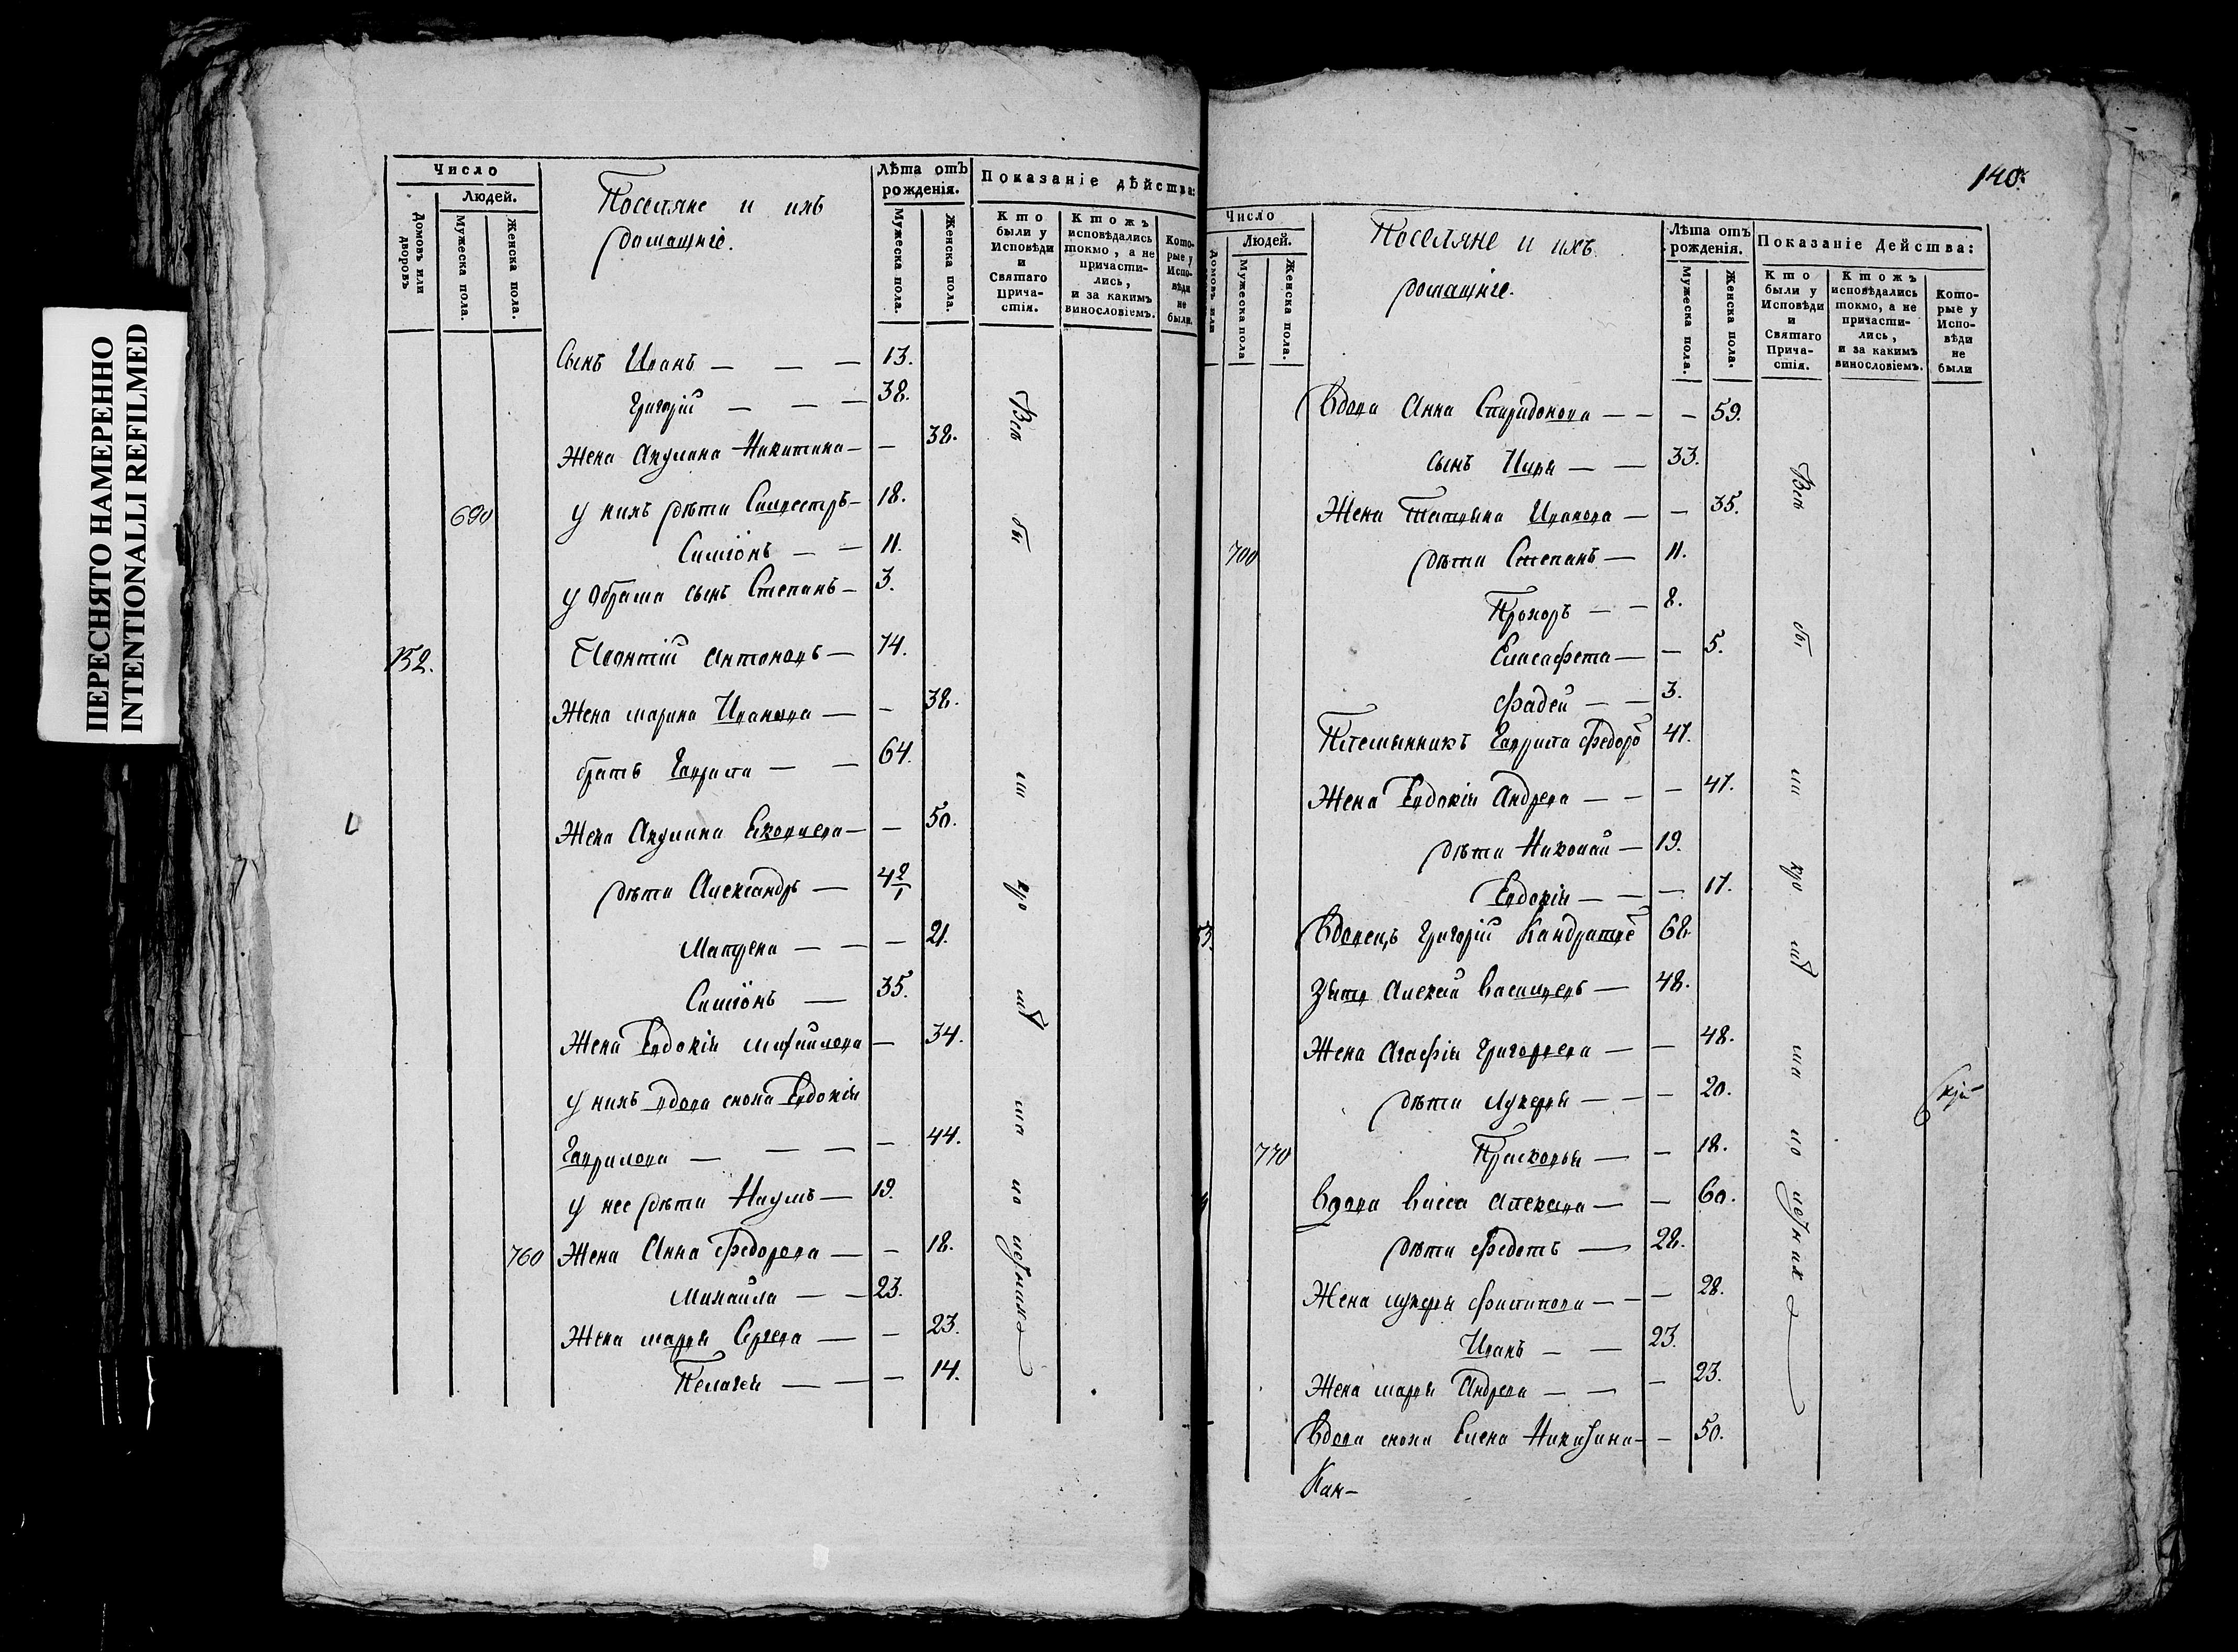 ПЕРЕСНЯТО НАМЕРЕННО
INTENTIONALLI REFILMED
Число
Людей.
Домовъ или дворовъ
Мужеска пола.
Женска пола.
Поселяне и ихъ
домашніе.
Лѣта отъ
рожденія.
Мужеска пола.
Женска пола.
Показаніе дѣйства:
Кто
были у
Исповѣди
и
Святаго
Прича-
стія.
Ктожъ
исповѣдались
токмо, а не
причасти-
лись,
и за какимъ
винословіемъ.
Кото-
рые у
Испо-
вѣди
не
были.
Сынъ Иванъ — — — 13.
Григорій — — — 38.
Жена Акулина Никитина — — 38.
690 у нихъ дѣти Силвестръ — 18.
Симіонъ — — 11.
у Абрама сынъ Степанъ — 3.
152. Леонтій Антоновъ — 74.
Жена марина Иванова — — 38.
братъ Гаврила — — 64.
Жена Акулина — — 50.
дѣти Александръ — 42/1
Матрена — — — 21.
Симіонъ — 35.
Жена Евдокія михайлова — 34.
у нихъ вдова сноха Евдокія
Гаврилова — — — — 44.
у нее дѣти Наумъ — 19.
760 Жена Анна Федорова — — 18.
Михайла — — 23.
Жена марья Сергева — — 23.
Пелагея — — — 14.
Всѣ бы ли
140.
Число
Людей.
Домовъ или
Мужеска пола
Женска пола.
Поселяне и ихъ
домашніе.
Лѣта отъ
рожденія.
Мужеска пола.
Женска пола.
Показаніе Действа:
Кто
были у
Исповѣди
и
Святаго
Прича-
стія.
Ктожъ
исповѣдались
токмо, а не
причасти-
лись,
и за какимъ
винословіемъ.
Кото-
рые у
Испо-
вѣди
не
были
Вдова Анна Спиридонова — — — 59.
сынъ Илья — — 33.
Жена Татьяна Иванова — — 35.
700 дѣти Степанъ — 11.
Прохоръ — — 8.
Елисафета — — 5.
Фадей — — 3.
Племянникъ Гаврила Федоро 47.
Жена Евдокія Андрева — — — 47.
дѣти Николай — 19.
Евдокія — — — 17.
53. Вдовецъ Григорій Кандратье 68.
Зять Алексей Василиевъ — 48.
Жена Агафія Григорьева — — 48.
дѣти Лукерья — — — 20.
770 Прасковья — — 18.
Вдова Васса Алексева — — 60.
дѣти Федотъ — 28.
Жена лукерья Филипова — — — 28.
Иванъ — — 23.
Жена марья Андрева — — — 23.
Вдова сноха Елена — — 50.
Всѣ бы ли
Кан-